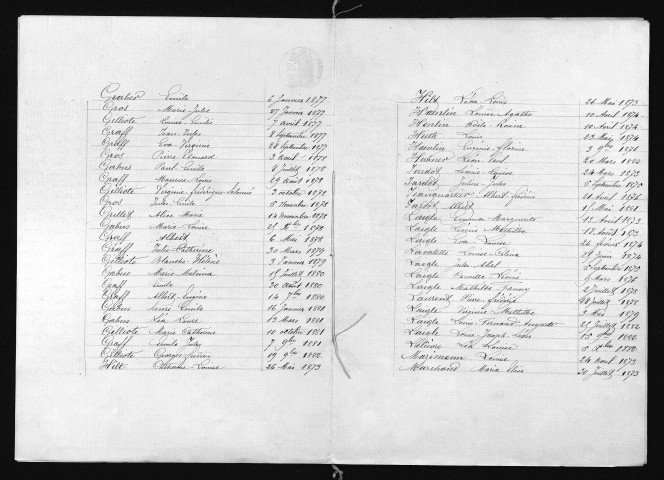 Grabier Emile 6 Janvier 1877
Gros Marie Julie 27 Janvier 1877
Gilliote Louise Emilie 7 avril 1877
Graff Jean Jules 8 Septembre 1877
Graff Eva Virginie 28 Septembre 1877
Gros Pierre Edouard 3 avril 1878
Gabus Paul Emile 8 Juillet 1878
Graff Maurice Louis 29 Août 1878
Gilliote Virginie 2 octobre 1878
Gros Jules Emile 5 Novembre 1878
Grillet Alice Marie 14 Novembre 1878
Gabus Marie Louise 25 Xbre 1878
Graff Albert 6 Mai 1878
Graff Julie Catherine 30 Mars 1879
Gilliote Blanche Hélène 3 Janvier 1879
Gabus Marie 15 Juillet 1880
Graff Emile 30 août 1880
Graff Albert Eugène 14 7bre 1880
Gabus Louis Emile 16 Janvier 1881
Gabus Léa Laure 13 Mars 1881
Gilliote Marie Catherine 10 octobre 1881
Graff Emile Jules 7 9bre 1881
Gilliote Georges 19 9bre 1882
Hilt Catherine Louise 26 Mai 1873
Hilt Léon Louis 26 Mai 1873
Haenlin Louise Agathe 10 Avril 1874
Henlin Adèle 10 Avril 1874
Heith Louis 23 Mai 1874
Haenlin Eugénie 3 9bre 1876
Hubner Léon Paul 20 Mars 1882
Jardot Léonie Louise 24 Mars 1873
Jardot Julien Jules 5 Septembre 1873
Jeanguartier Albert 21 Avril 1876
Jardot Albert 1 Mai 1881
Laigle Emma Marguerite 13 Avril 1873
Laigle Louise Mathilde 17 Août 1873
Laigle Eva Louise 26 février 1874
Lavalette Louise 29 Juin 1874
Laigle Jules Abel Septembre 1875
Laigle Camille 6 Mars 1876
Laigle Mathilde Fanny 2 Juillet 1878
Laurent Pierre 28 Juillet 1878
Laigle Virginie Mathilde 9 Mai 1879
Laigle Louis Fernand Auguste 25 Juillet 1882
Laigle Louis Joseph Léon 13 9bre 1882
Lelièvre Léa Louise 5 Xbre 1872
Marimann Louise 24 Avril 1873
Marchand Maria Elise 30 Juillet 1873